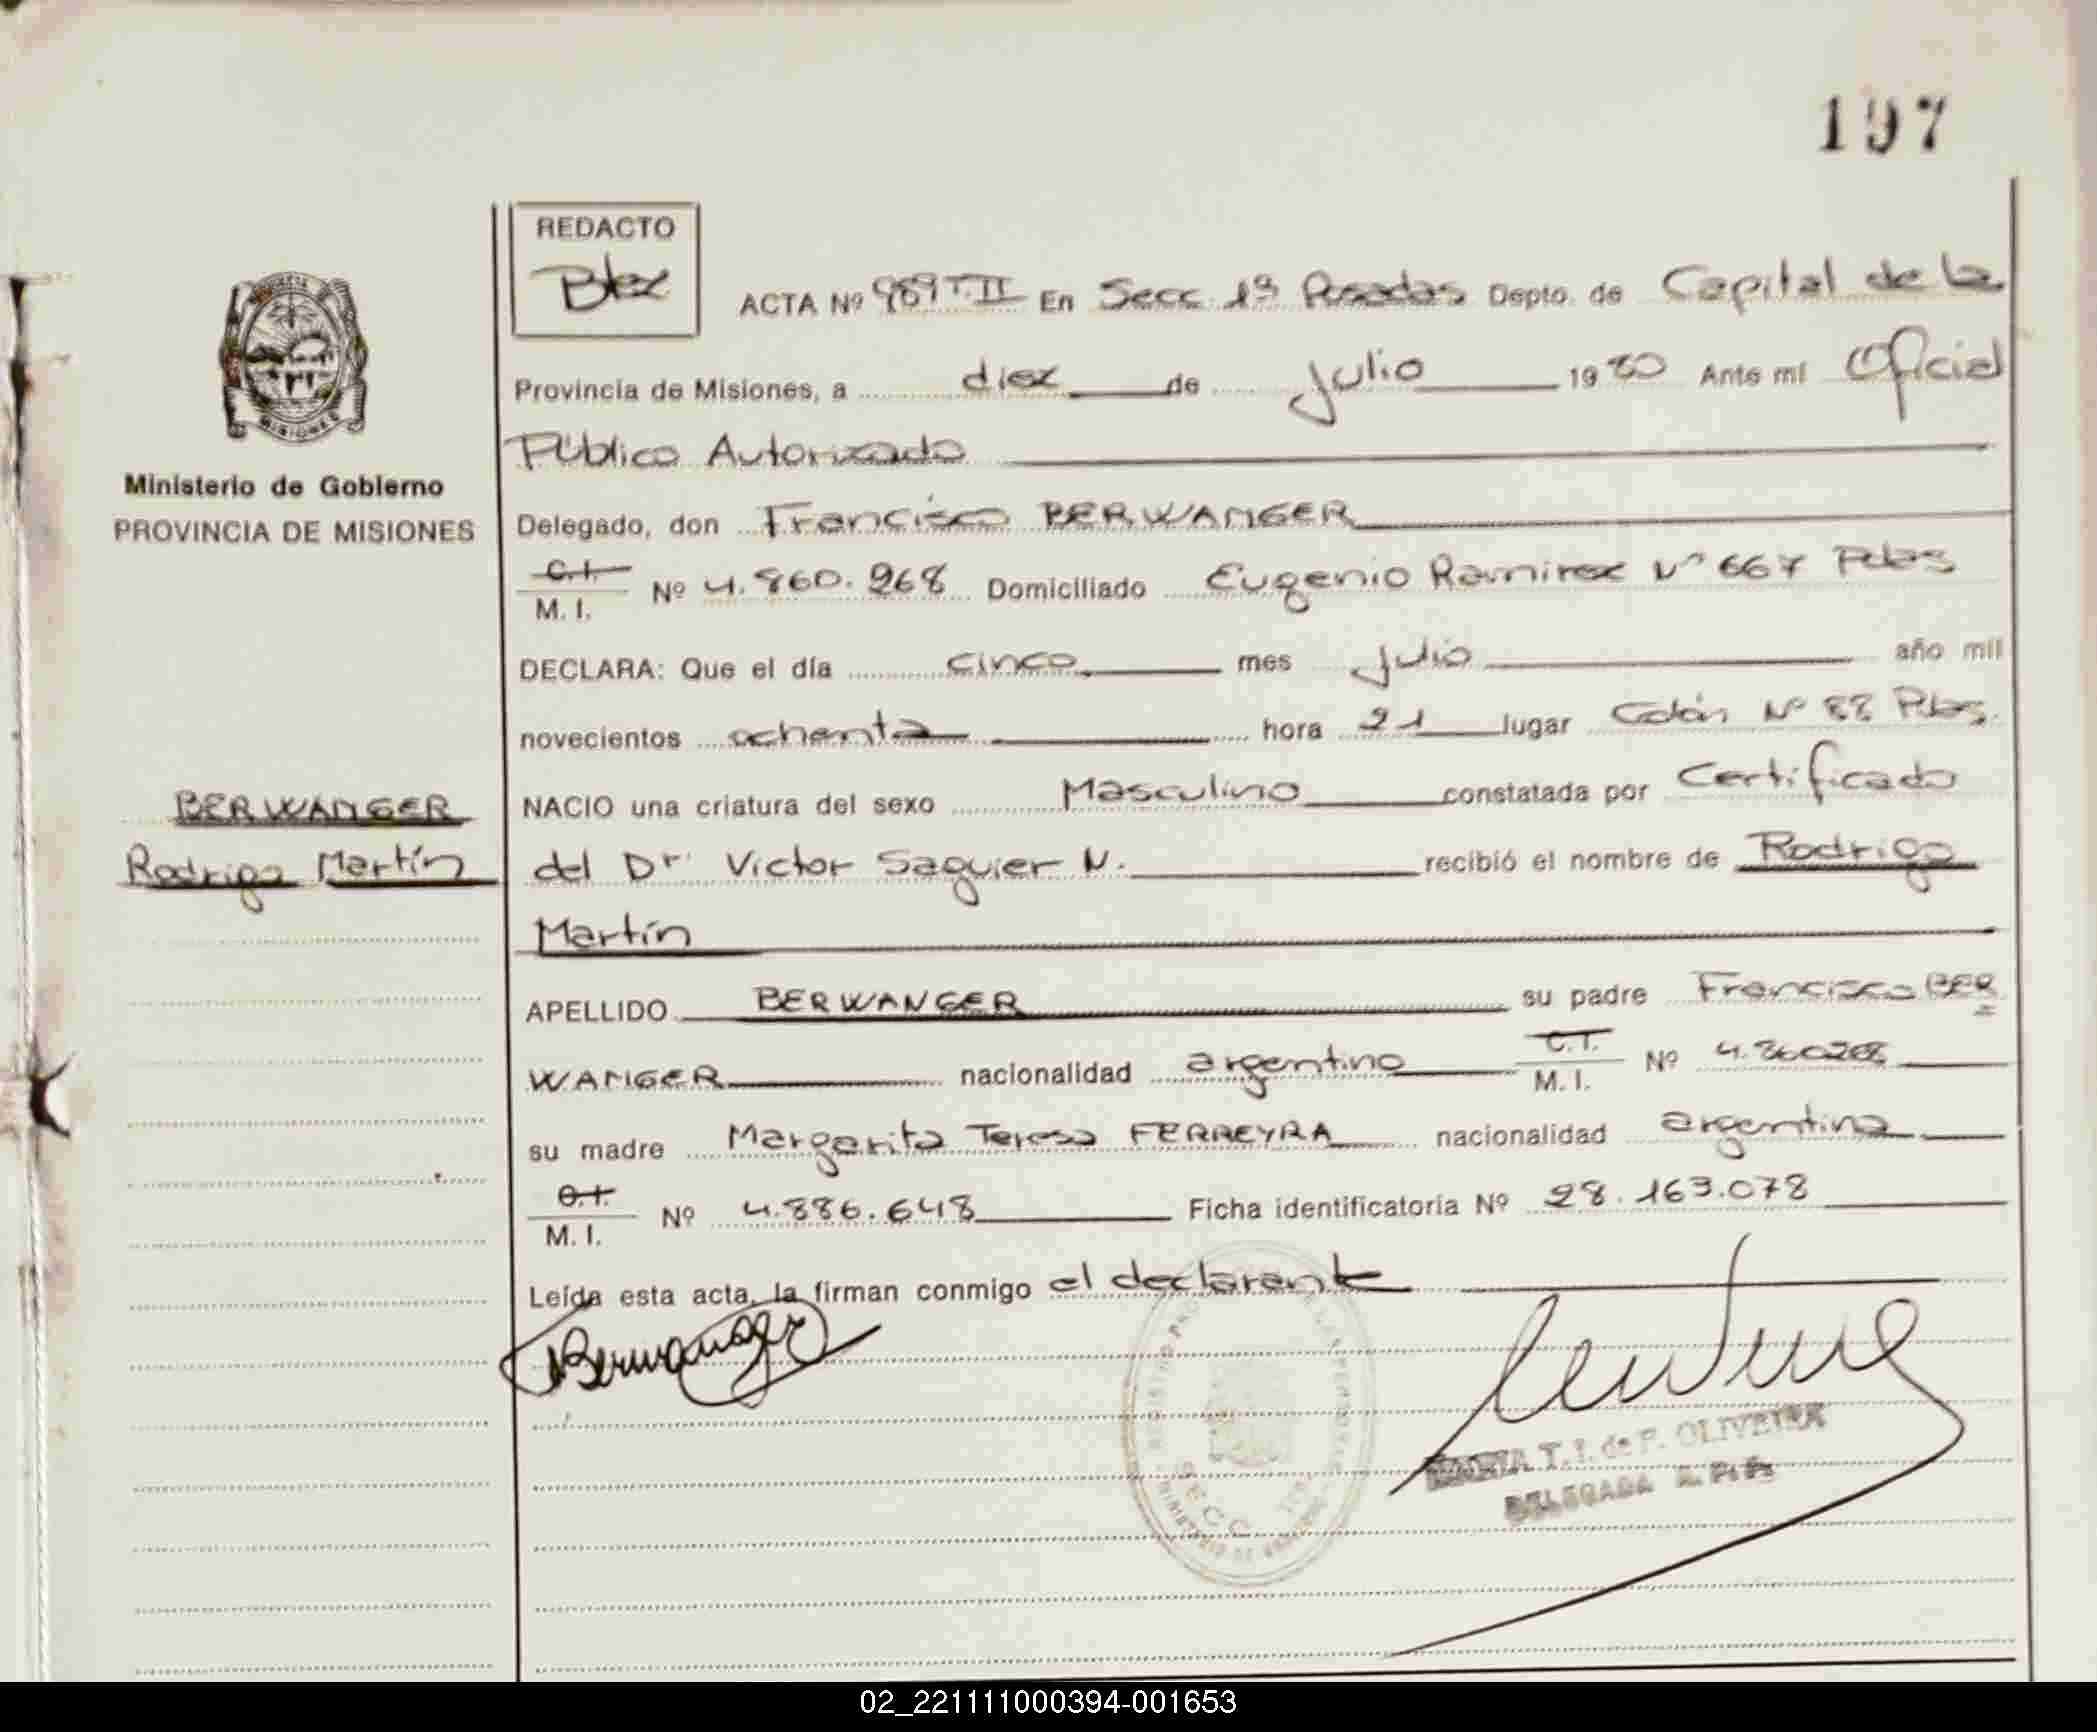 197
REDACTO
ACTA Nº 989 T. II En Secc. 1ª Posadas Depto. de Capital de la
Provincia de Misiones, a diez de julio 1980 Ante mi Oficial
Público Autorizado
Ministerio de Gobierno
PROVINCIA DE MISIONES
Delegado, don Francisco BERWANGER
C.I. M. I. Nº 4.860.268 Domiciliado Eugenio Ramirez Nº 667 Pdas
DECLARA: Que el día cinco mes julio año mil
novecientos ochenta hora 21 lugar Colón Nº 88 Pdas.
BERWANGER
Rodrigo Martín
NACIO una criatura del sexo Masculino constatada por Certificado
del Dr. Victor Saguier N. recibió el nombre de Rodrigo
Martín
APELLIDO BERWANGER su padre Francisco BER
WANGER nacionalidad argentino C.I. M. I. Nº 4.860268
su madre Margarita Teresa FERREYRA nacionalidad argentina
C.I. M. I. Nº 4.886.648 Ficha identificatoria Nº 28.163.078
Leída esta acta, la firman conmigo el declarante
Berwanger
T. I. de P. OLIVEIRA
DELEGADA R. P. P.
02_221111000394-001653